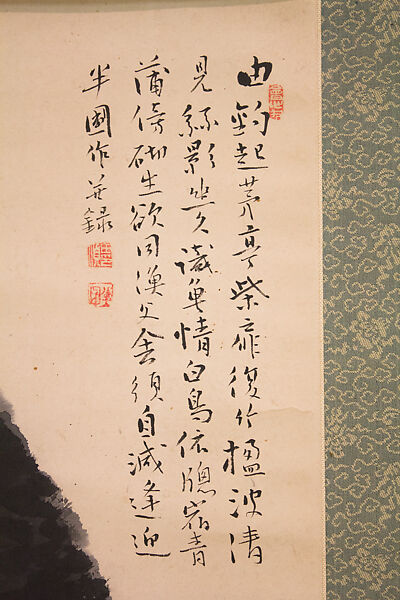 由釣起茅亭柴扉復竹楹波清
見絲影坐久識魚情白鳥依牕宿青
蒲傍砌生欲同漁父舍須自減逢迎
半作并録